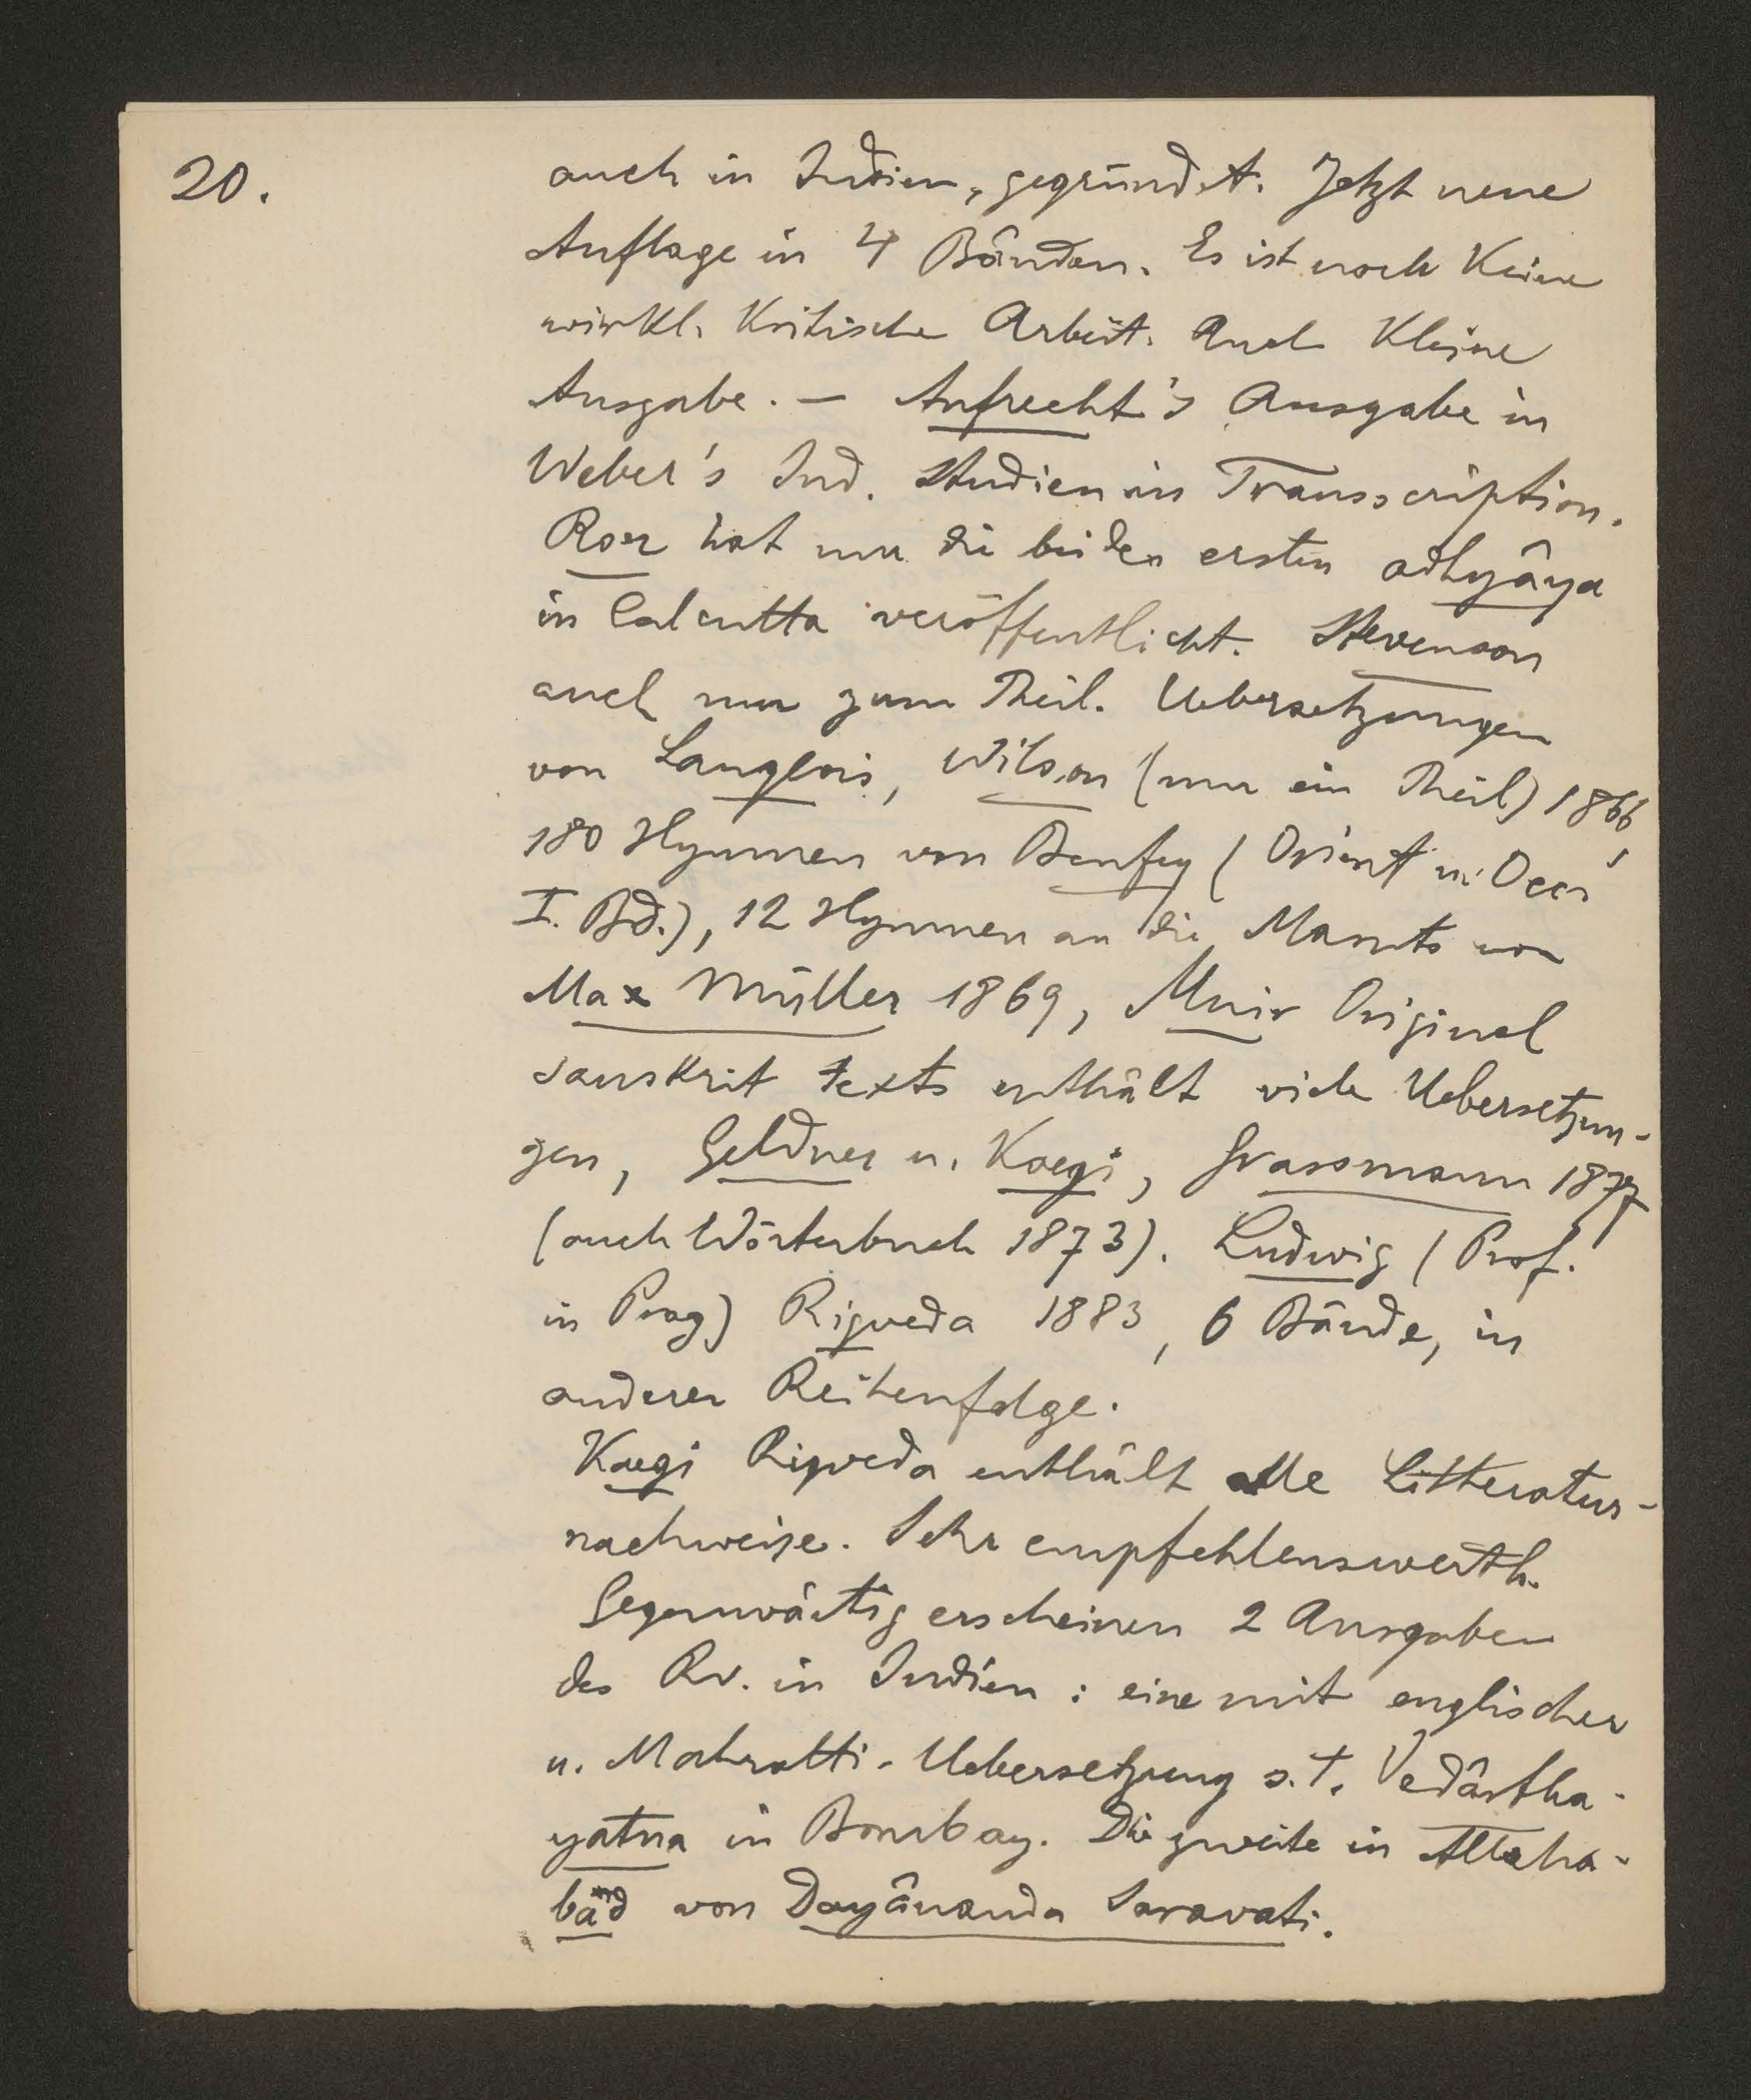 20.
auch in Indien, gegründet. Jetzt neue
Auflage in 4 Bänden. Es ist noch keine
wirkl. kritische Arbeit. Auch kleine
Ausgabe. — Aufrecht's Ausgabe in
Weber's Ind. Studien in Transscription.
Roer hat nur die beiden ersten adhyâya
in Calcutta veröffentlicht. Stevenson
auch nur zum Theil. Uebersetzungen
von Langlois, Wilson (nur ein Theil) 1866,
180 Hymnen von Benfey (Orient u. Occ.
I. Bd.), 12 Hymnen an die Maruts von
Max Müller 1869, Muir Original
sanskrit texts enthält viele Uebersetzun-
gen, Geldner u. Kaegi, Grassmann 1877
(auch Wörterbuch 1873). Ludwig (Prof.
in Prag) Rigveda 1883, 6 Bände, in
anderer Reihenfolge.
Kaegi Rigveda enthält alle Litteratur-
nachweise. Sehr empfehlenswerth.
Gegenwärtig erscheinen 2 Ausgaben
des Rv. in Indien: eine mit englischer
u. Mahratti-Uebersetzung s.t. Vedârtha-
yatna in Bombay. Die zweite in Allaha-
bad von Dayânanda Saravati.